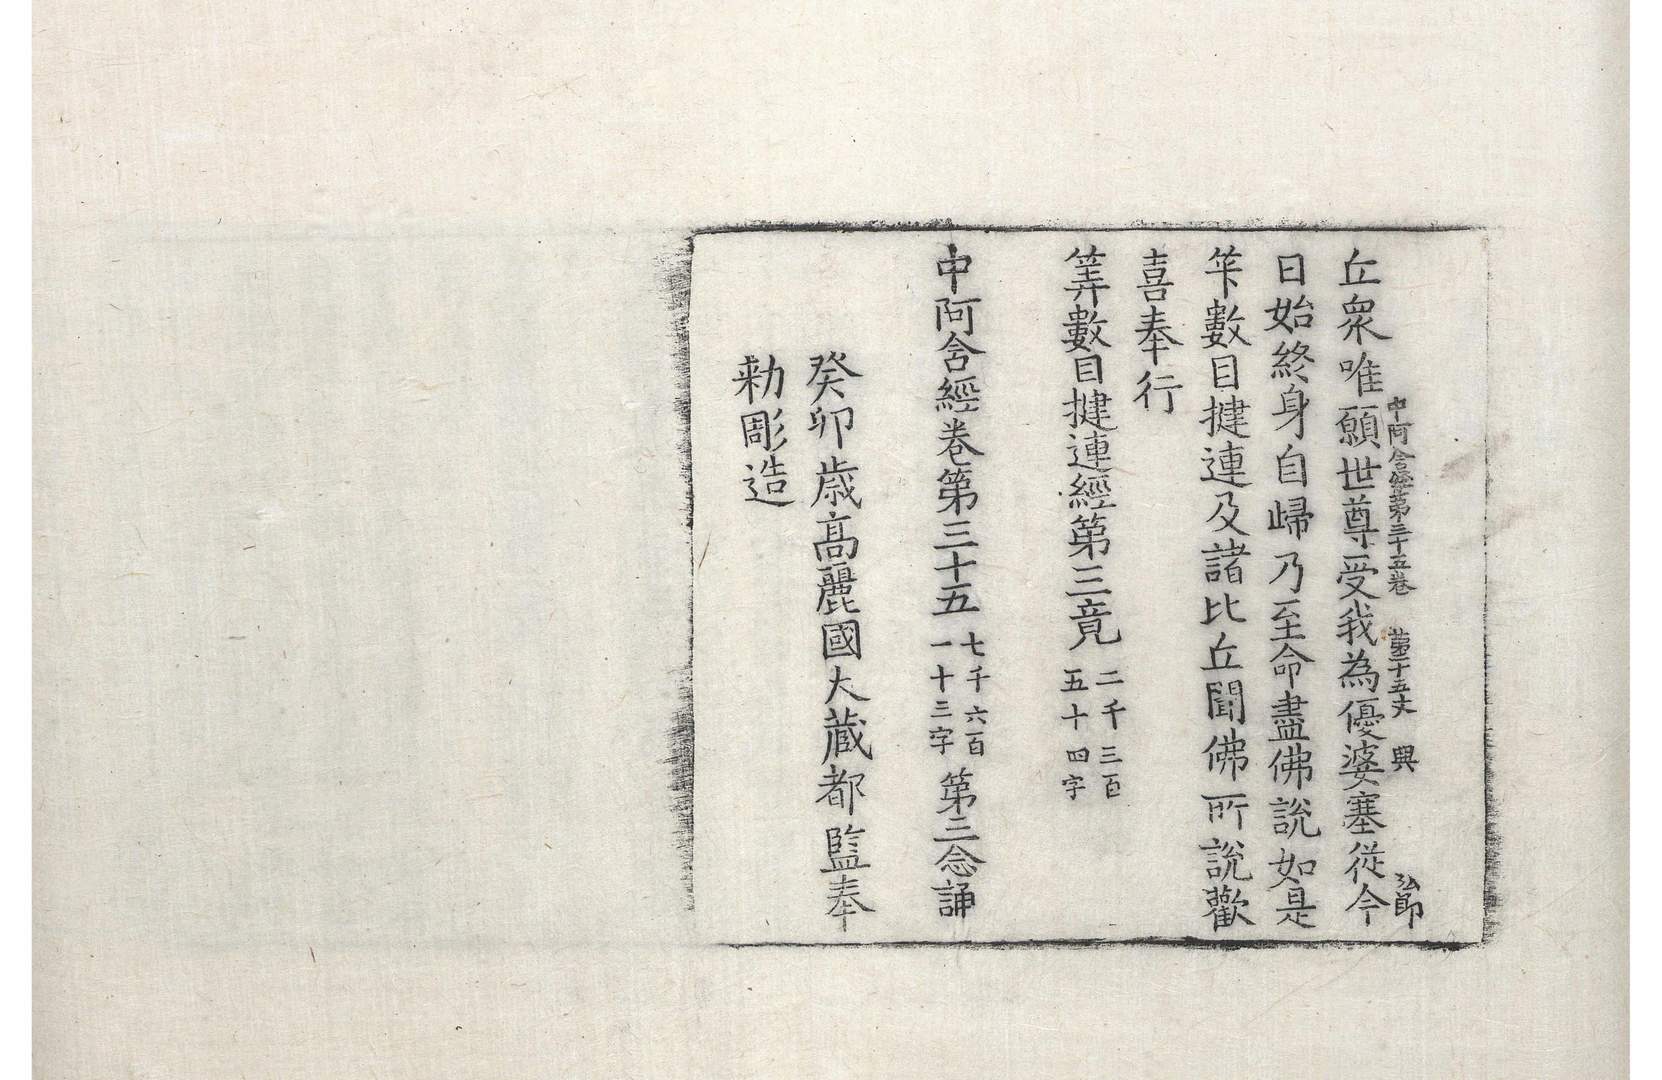 中阿含經第三十五卷 第二十五丈 興
丘衆唯願世尊受我為優婆塞從今
日始終身自歸乃至命盡佛說如是
筭數目揵連及諸比丘聞佛所說歡
喜奉行
筭數目揵連經第三竟 二千三百五十四字
中阿含經卷第三十五 七千六百一十三字 第三念誦
癸卯歳高麗國大藏都監奉
勑彫造